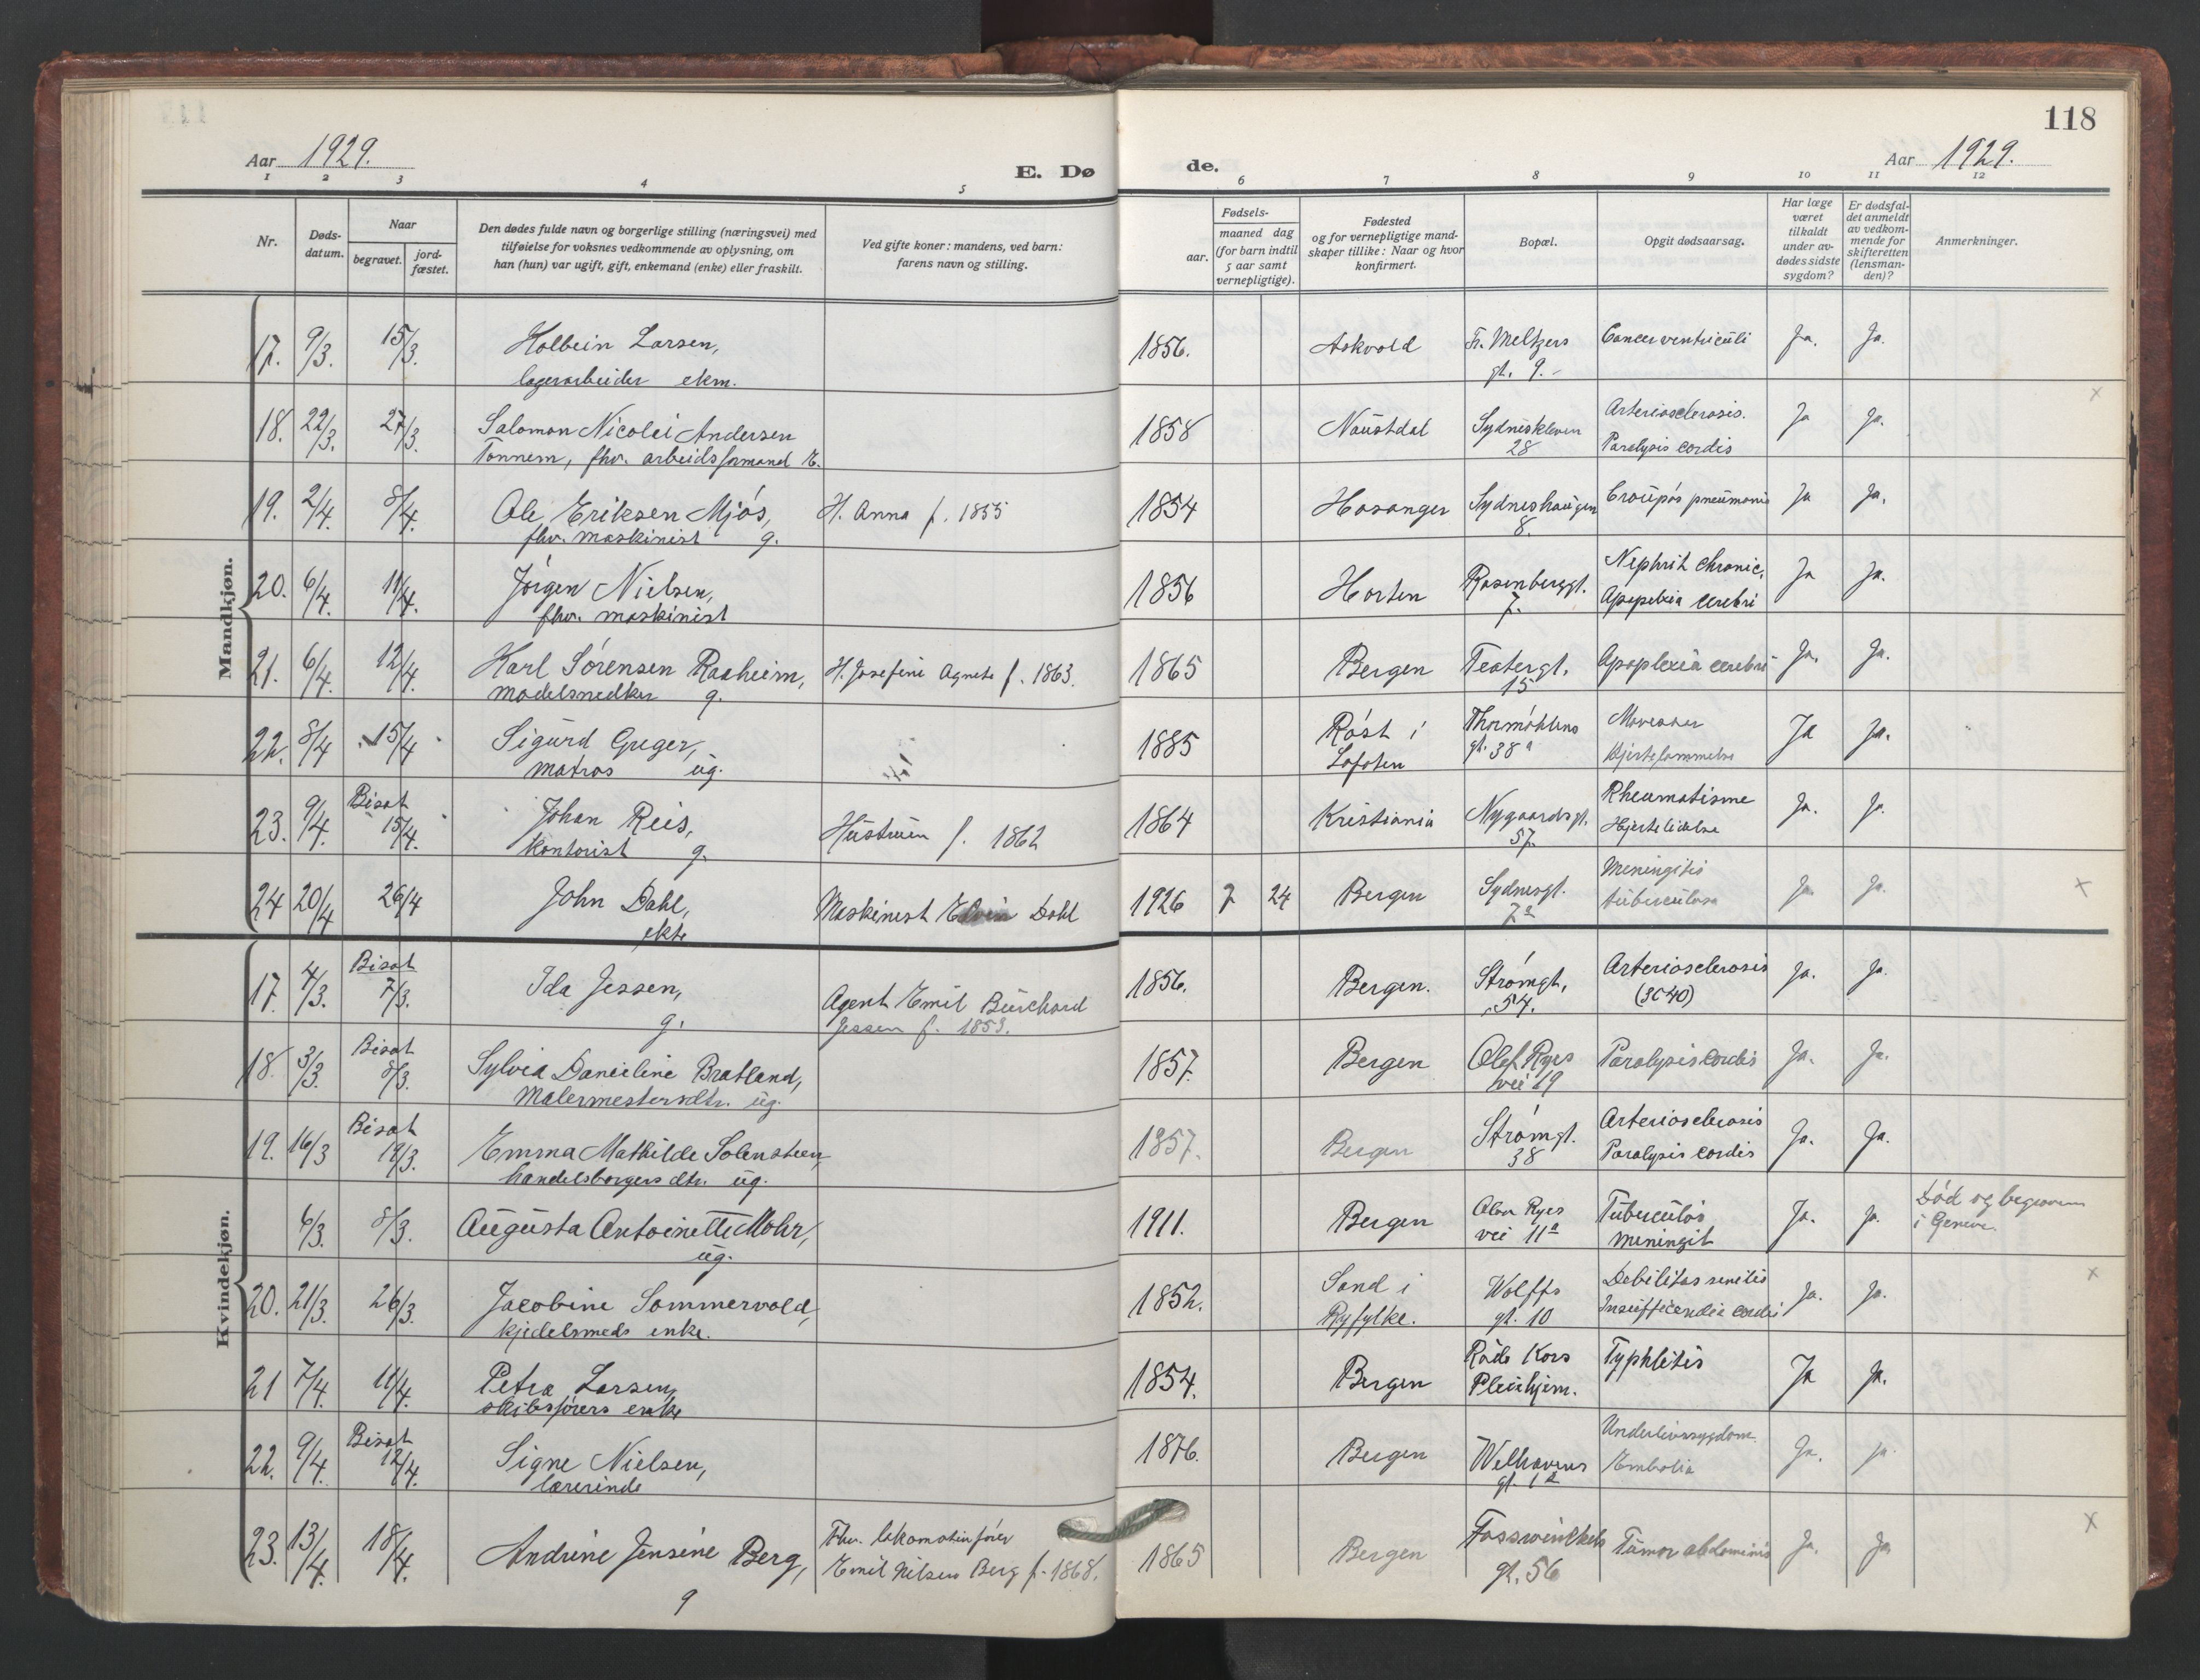 118
Aar 1929.
E. Dø de.
Aar 1929.
1 2 3 4 5 6 7 8 9 10 11 12
Nr.
Døds-
datum.
Naar
begravet.
jord-
fæstet.
Den dødes fulde navn og borgerlige stilling (næringsvei) med
tilføielse for voksnes vedkommende av oplysning, om
han (hun) var ugift, gift, enkemand (enke) eller fraskilt.
Ved gifte koner: mandens, ved barn:
farens navn og stilling.
Fødsels-
aar.
maaned dag
(for barn indtil
5 aar samt
vernepligtige).
Fødested
og for vernepligtige mand-
skaper tillike: Naar og hvor
konfirmert.
Bopæl.
Opgit dødsaarsag.
Har læge
været
tilkaldt
under av-
dødes sidste
sygdom?
Er dødsfal-
det anmeldt
av vedkom-
mende for
skifteretten
(lensman-
den)?
Anmerkninger.
Mandkjøn.
17. 9/3. 15/3. Holbein Larsen, 1856. Askvold Fr. Meltzers Cancer ventriculi Ja. Ja.
lagerarbeider ekm. gt. 9.-
18. 22/3. 27/3. Salomon Nicolai Andersen 1858 Naustdal Sydneskleven Arteriosclerosis. Ja Ja.
Tonnem, fhv. arbeidsformand E. 28 Paralysis cordis
19. 2/4. 8/4. Ole Eriksen Mjøs, H. Anna f. 1855 1854 Hosanger Sydneshaugen Croupøs pneumonia Ja Ja.
fhv. maskinist g. 8.
20. 6/4. 11/4. Jørgen Nielsen, 1856 Horten Rosenberggt. Nephrit chronic. Ja Ja.
fhv. maskinist 7. Apoplexia cerebri
21. 6/4. 12/4. Karl Sørensen Raaheim, H. Josefine Agnete f. 1863. 1865 Bergen Teatergt. Apoplexia cerebri Ja. Ja.
modelsnedker g. 15
22. 8/4 15/4 Sigurd Greger, 1885 Røst i Thormøhlens Ja Ja.
matros ug. Lofoten gt. 38a Hjertelammelse
23. 9/4. Bisat 15/4. Johan Reis, Hustruen f. 1862 1864 Kristiania Nygaardsgt. Rheumatisme Ja. Ja.
kontorist g. 57. Hjertelidelse
24 20/4 26/4 John Dahl, Maskinist Edvin Dahl 1926 7 24 Bergen Sydnesgt. Meningitis Ja Ja.
ekte 7a tuberculosa
Kvindekjøn.
17. 4/3. Bisat 7/3. Ida Jessen, Agent Emil Burchard 1856. Bergen. Strømgt. Arteriosclerosis Ja. Ja.
g. Jessen f. 1853. 54. (3040)
18. 3/3. Bisat 8/3. Sylvia Danieline Bratland, 1857. Bergen Olaf Ryes Paralysis cordis Ja. Ja.
Malermestersdtr. ug. vei 19
19. 16/3 Bisat 19/3. Emma Mathilde Solensteen, 1857. Bergen Strømgt. Arteriosclerosis Ja. Ja.
handelsborgers dtr. ug. 38 Paralysis cordis
6/3. 8/3. Augusta Antoinette Mohr, 1911. Bergen Olav Ryes Tuberculøs Ja. Ja. Død og begraven
ug. vei 11a meningit i Geneve.
20. 21/3. 26/3. Jacobine Sommervold, 1852. Sand i Wolffs Debilitas senilis Ja. Ja.
kjedelsmeds enke. Ryfylke. gt. 10 Insufficientia cordis
21 7/4. 11/4. Petra Larsen, 1854. Bergen Røde Kors Typhlitis Ja Ja.
skibsførers enke Pleiehjem.
22. 9/4. Bisat 12/4. Signe Nielsen, 1876. Bergen Welhavens Underlivssygdom. Ja. Ja.
lærerinde gt. 1a Embolia
23. 13/4. 18/4. Andrine Jensine Berg, Fhv. lokomotivfører 1865 Bergen Fosswinckels Tumor abdominis Ja. Ja
g Emil Nilsen Berg f. 1868. gt. 56